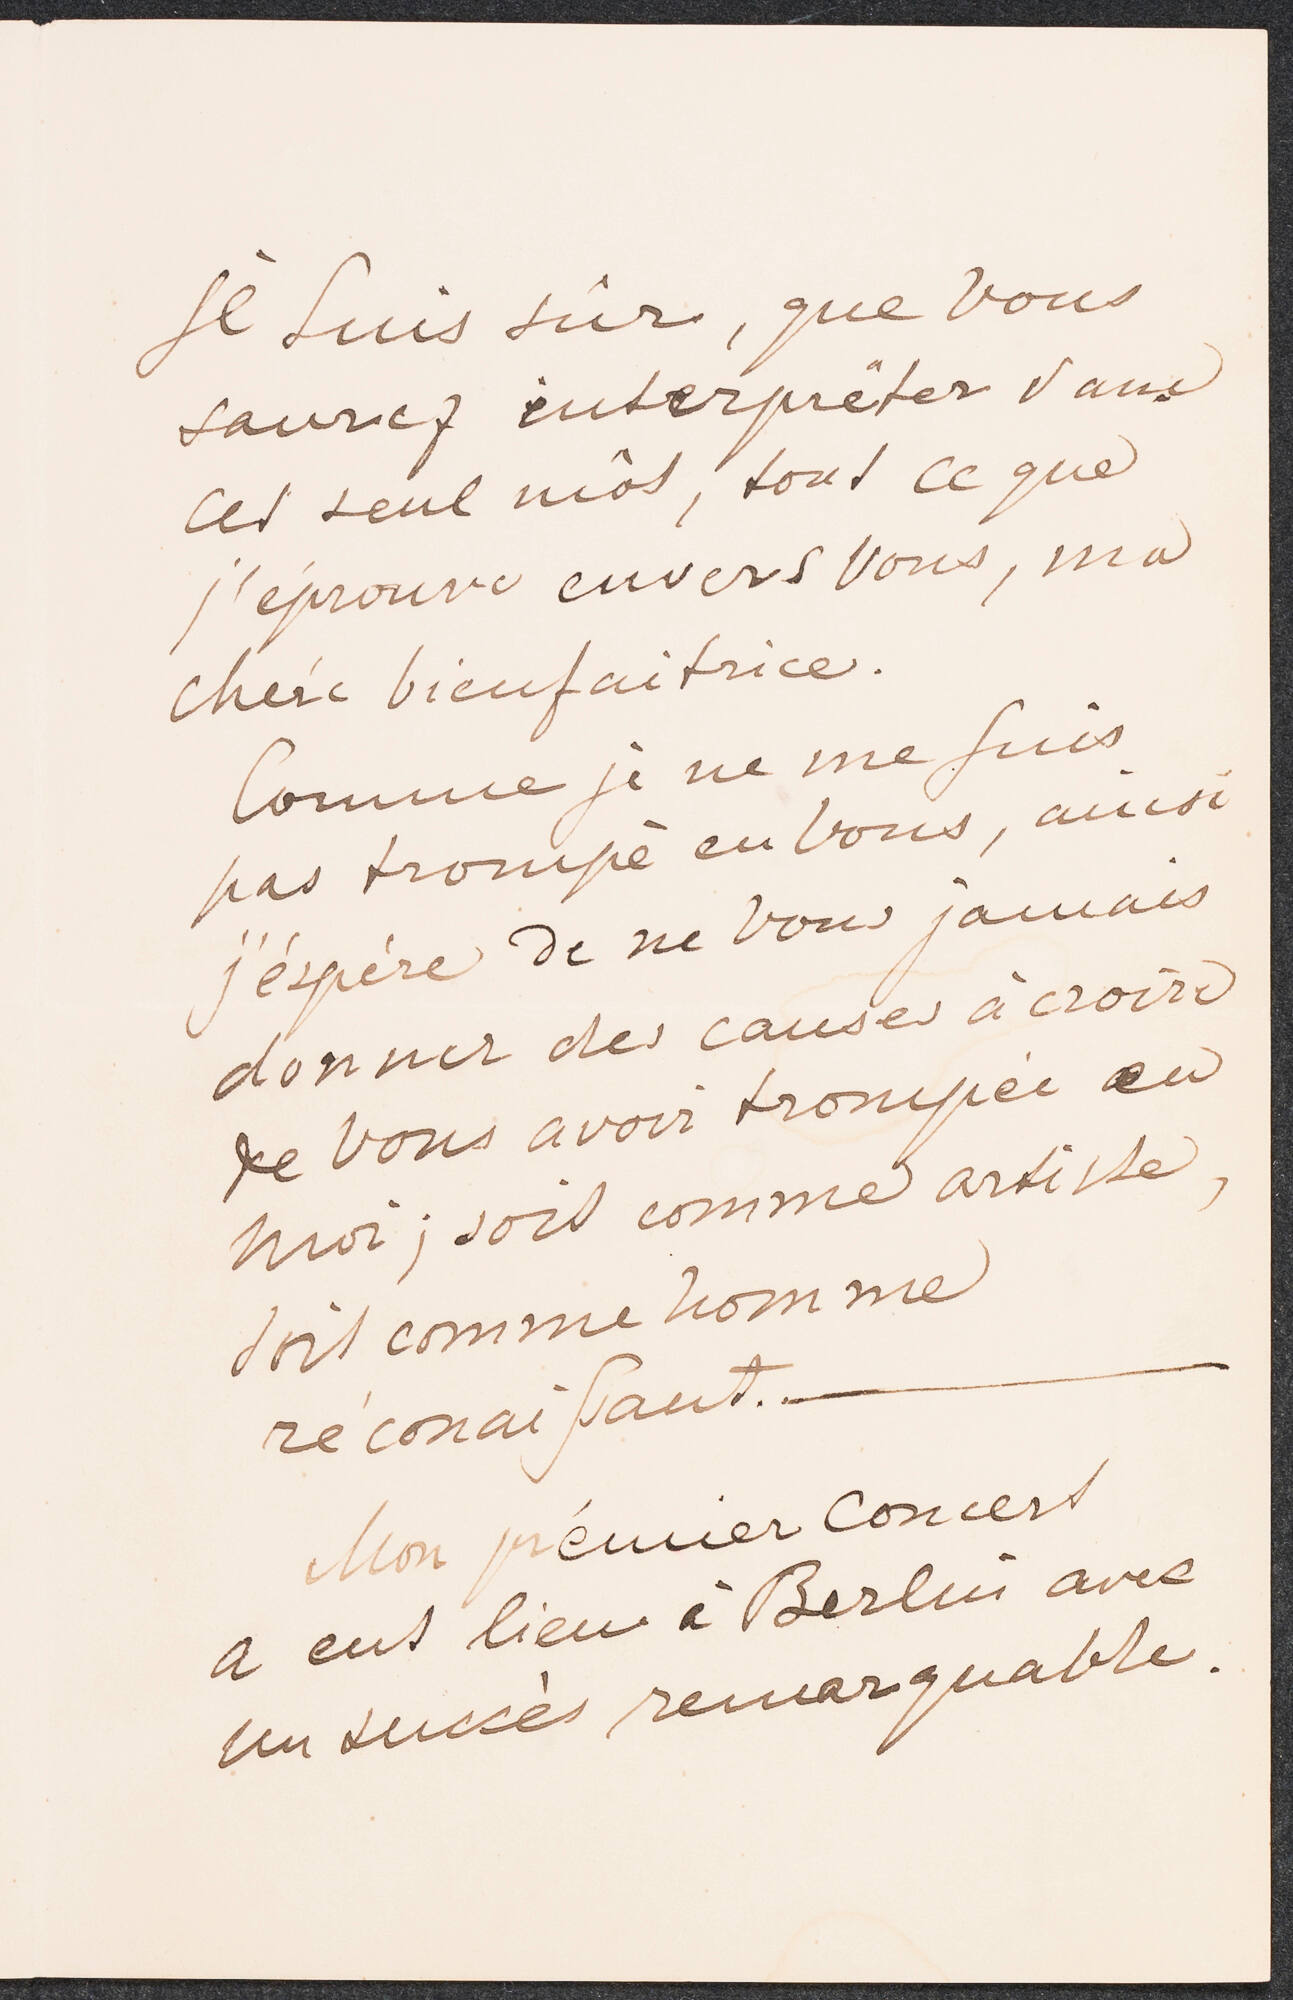 Jè suis sûr, que vous
saurez interprêter dans
cet seul môt, tout ce que
j'éprouve envers vous, ma
cheré bienfaitrice.
Comme jè ne me suis
pas trompè en vous, ainsi
j'éspére de ne vous jamais
donner des causes à croire
de vous avoir trompée en
moi; soit comme artiste,
soit comme homme
réconaissant. —
Mon prémier concert
a eut lieu à Berlin avec
un succès remarquable.